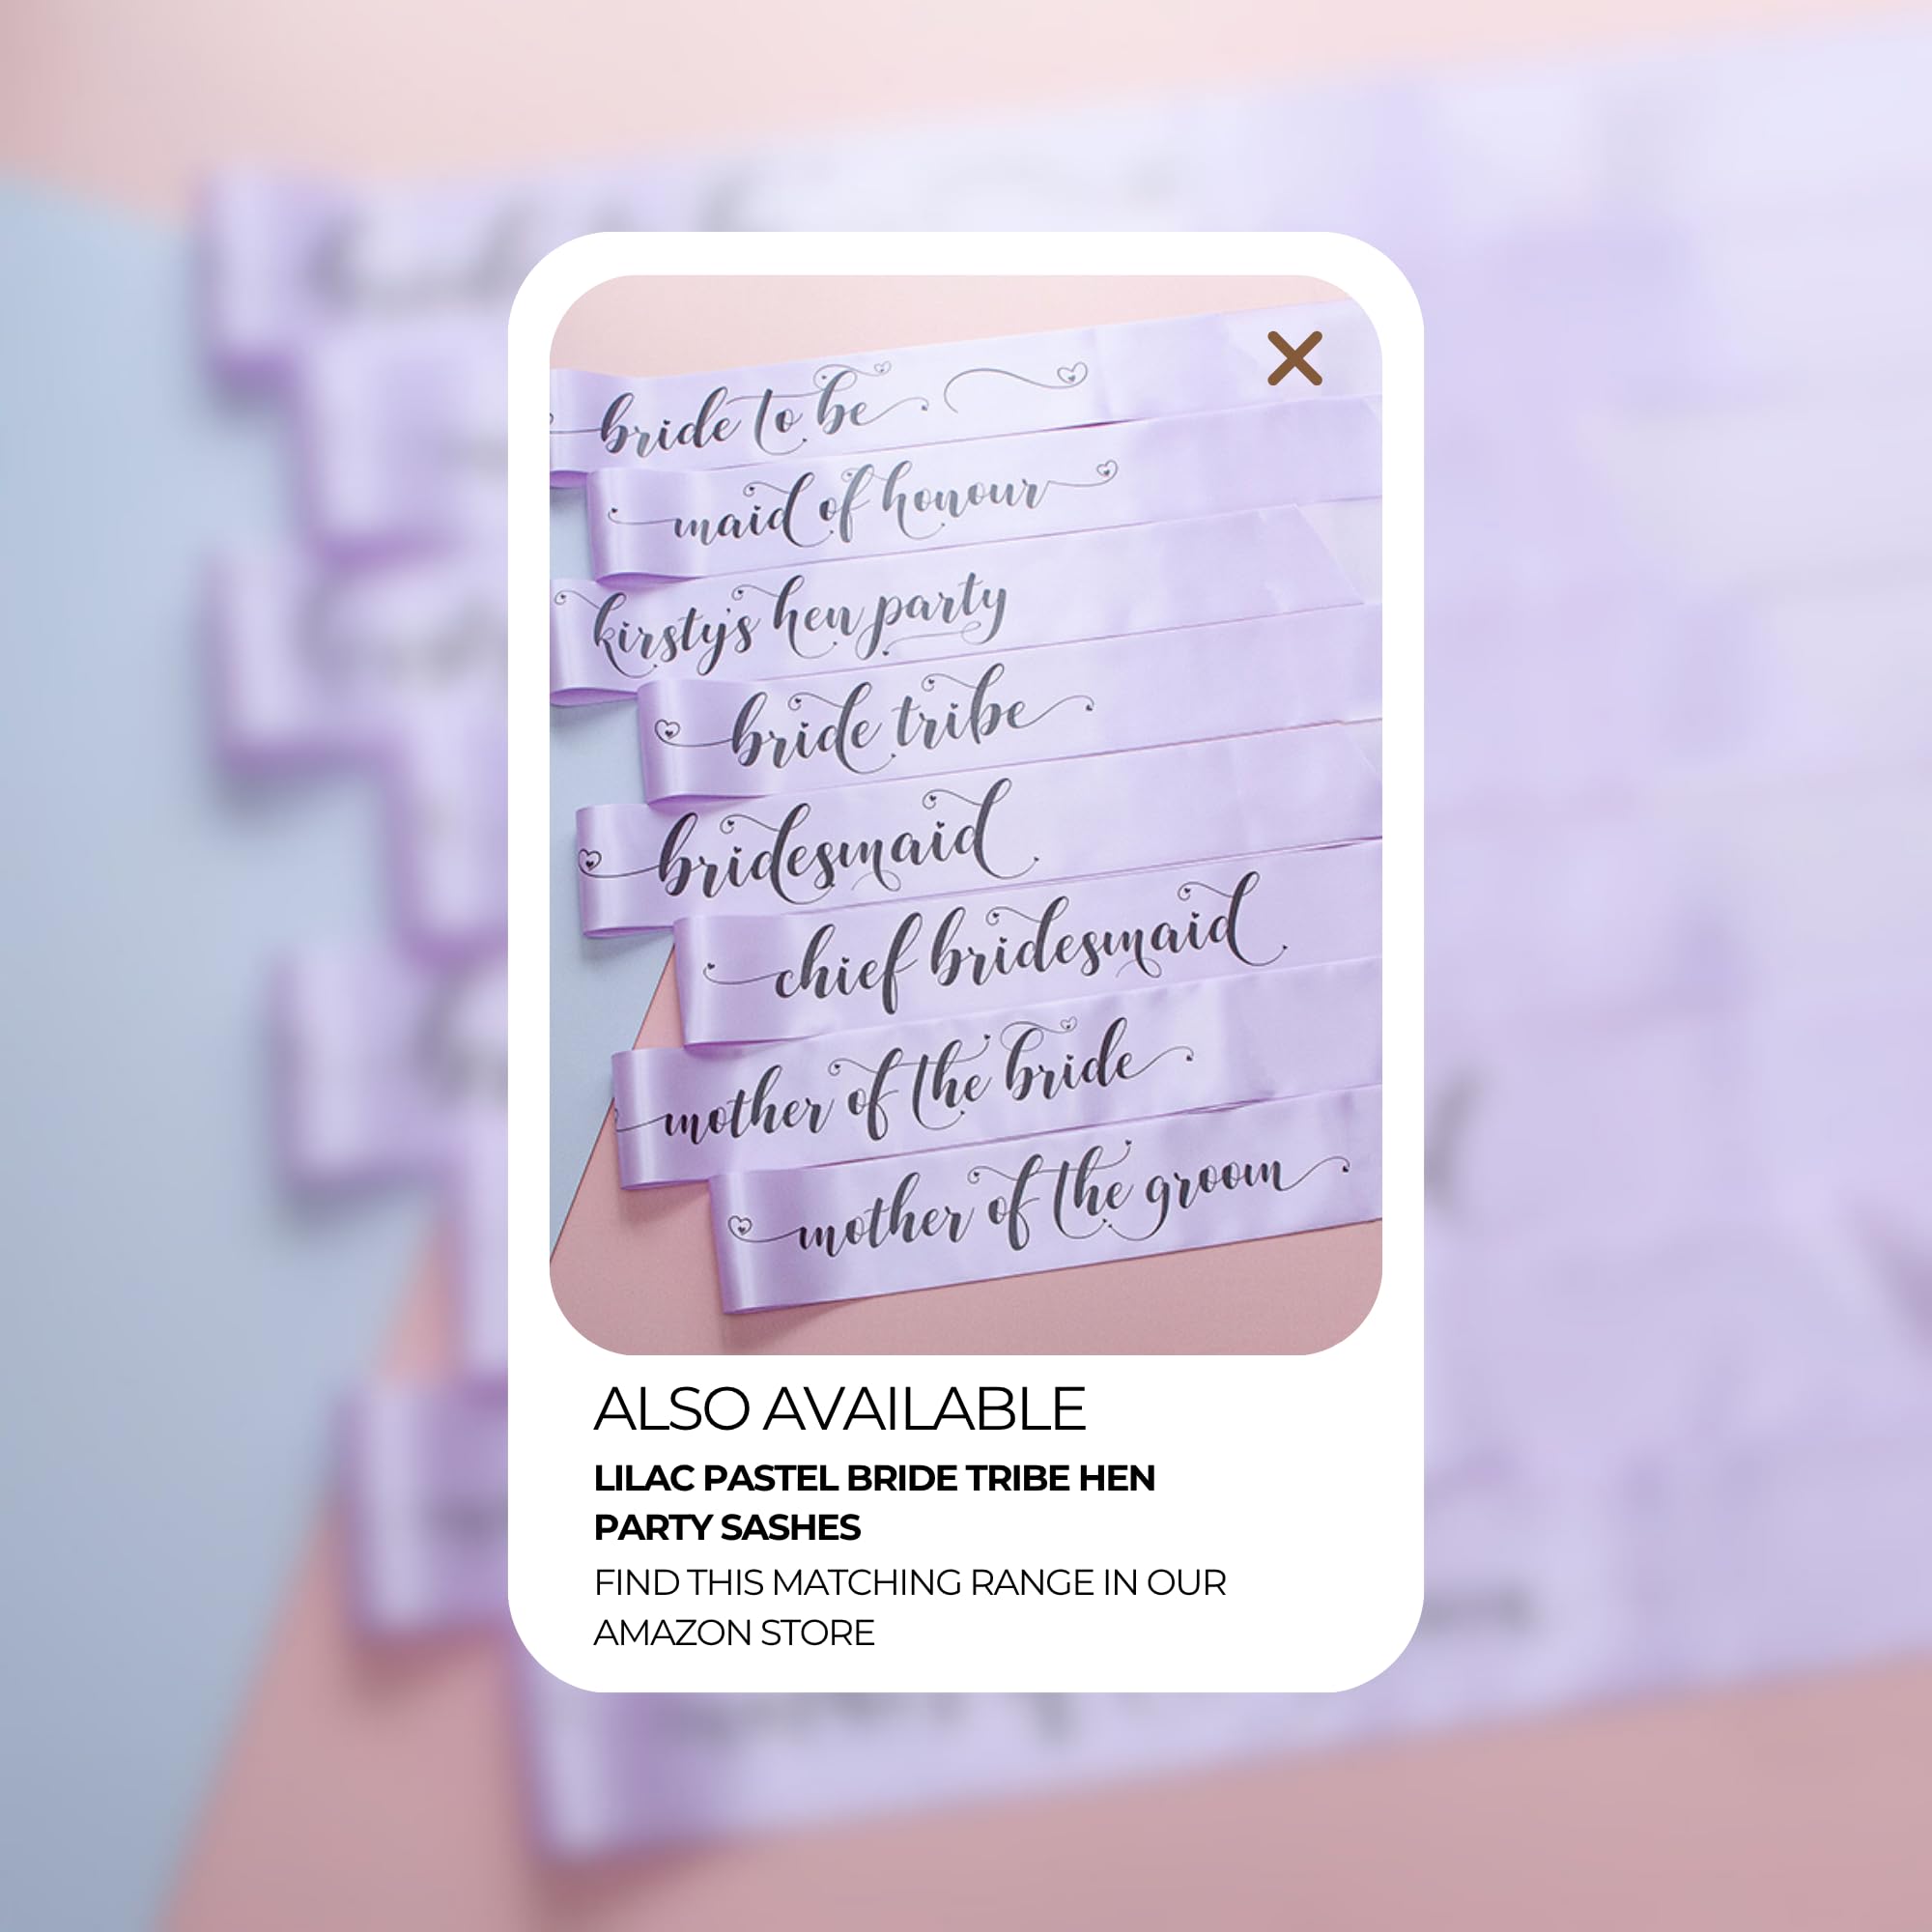 bride to be
maid of honour
kirsty's hen party
bride tribe
bridesmaid
chief bridesmaid
mother of the bride
mother of the groom
ALSO AVAILABLE
LILAC PASTEL BRIDE TRIBE HEN
PARTY SASHES
FIND THIS MATCHING RANGE IN OUR
AMAZON STORE